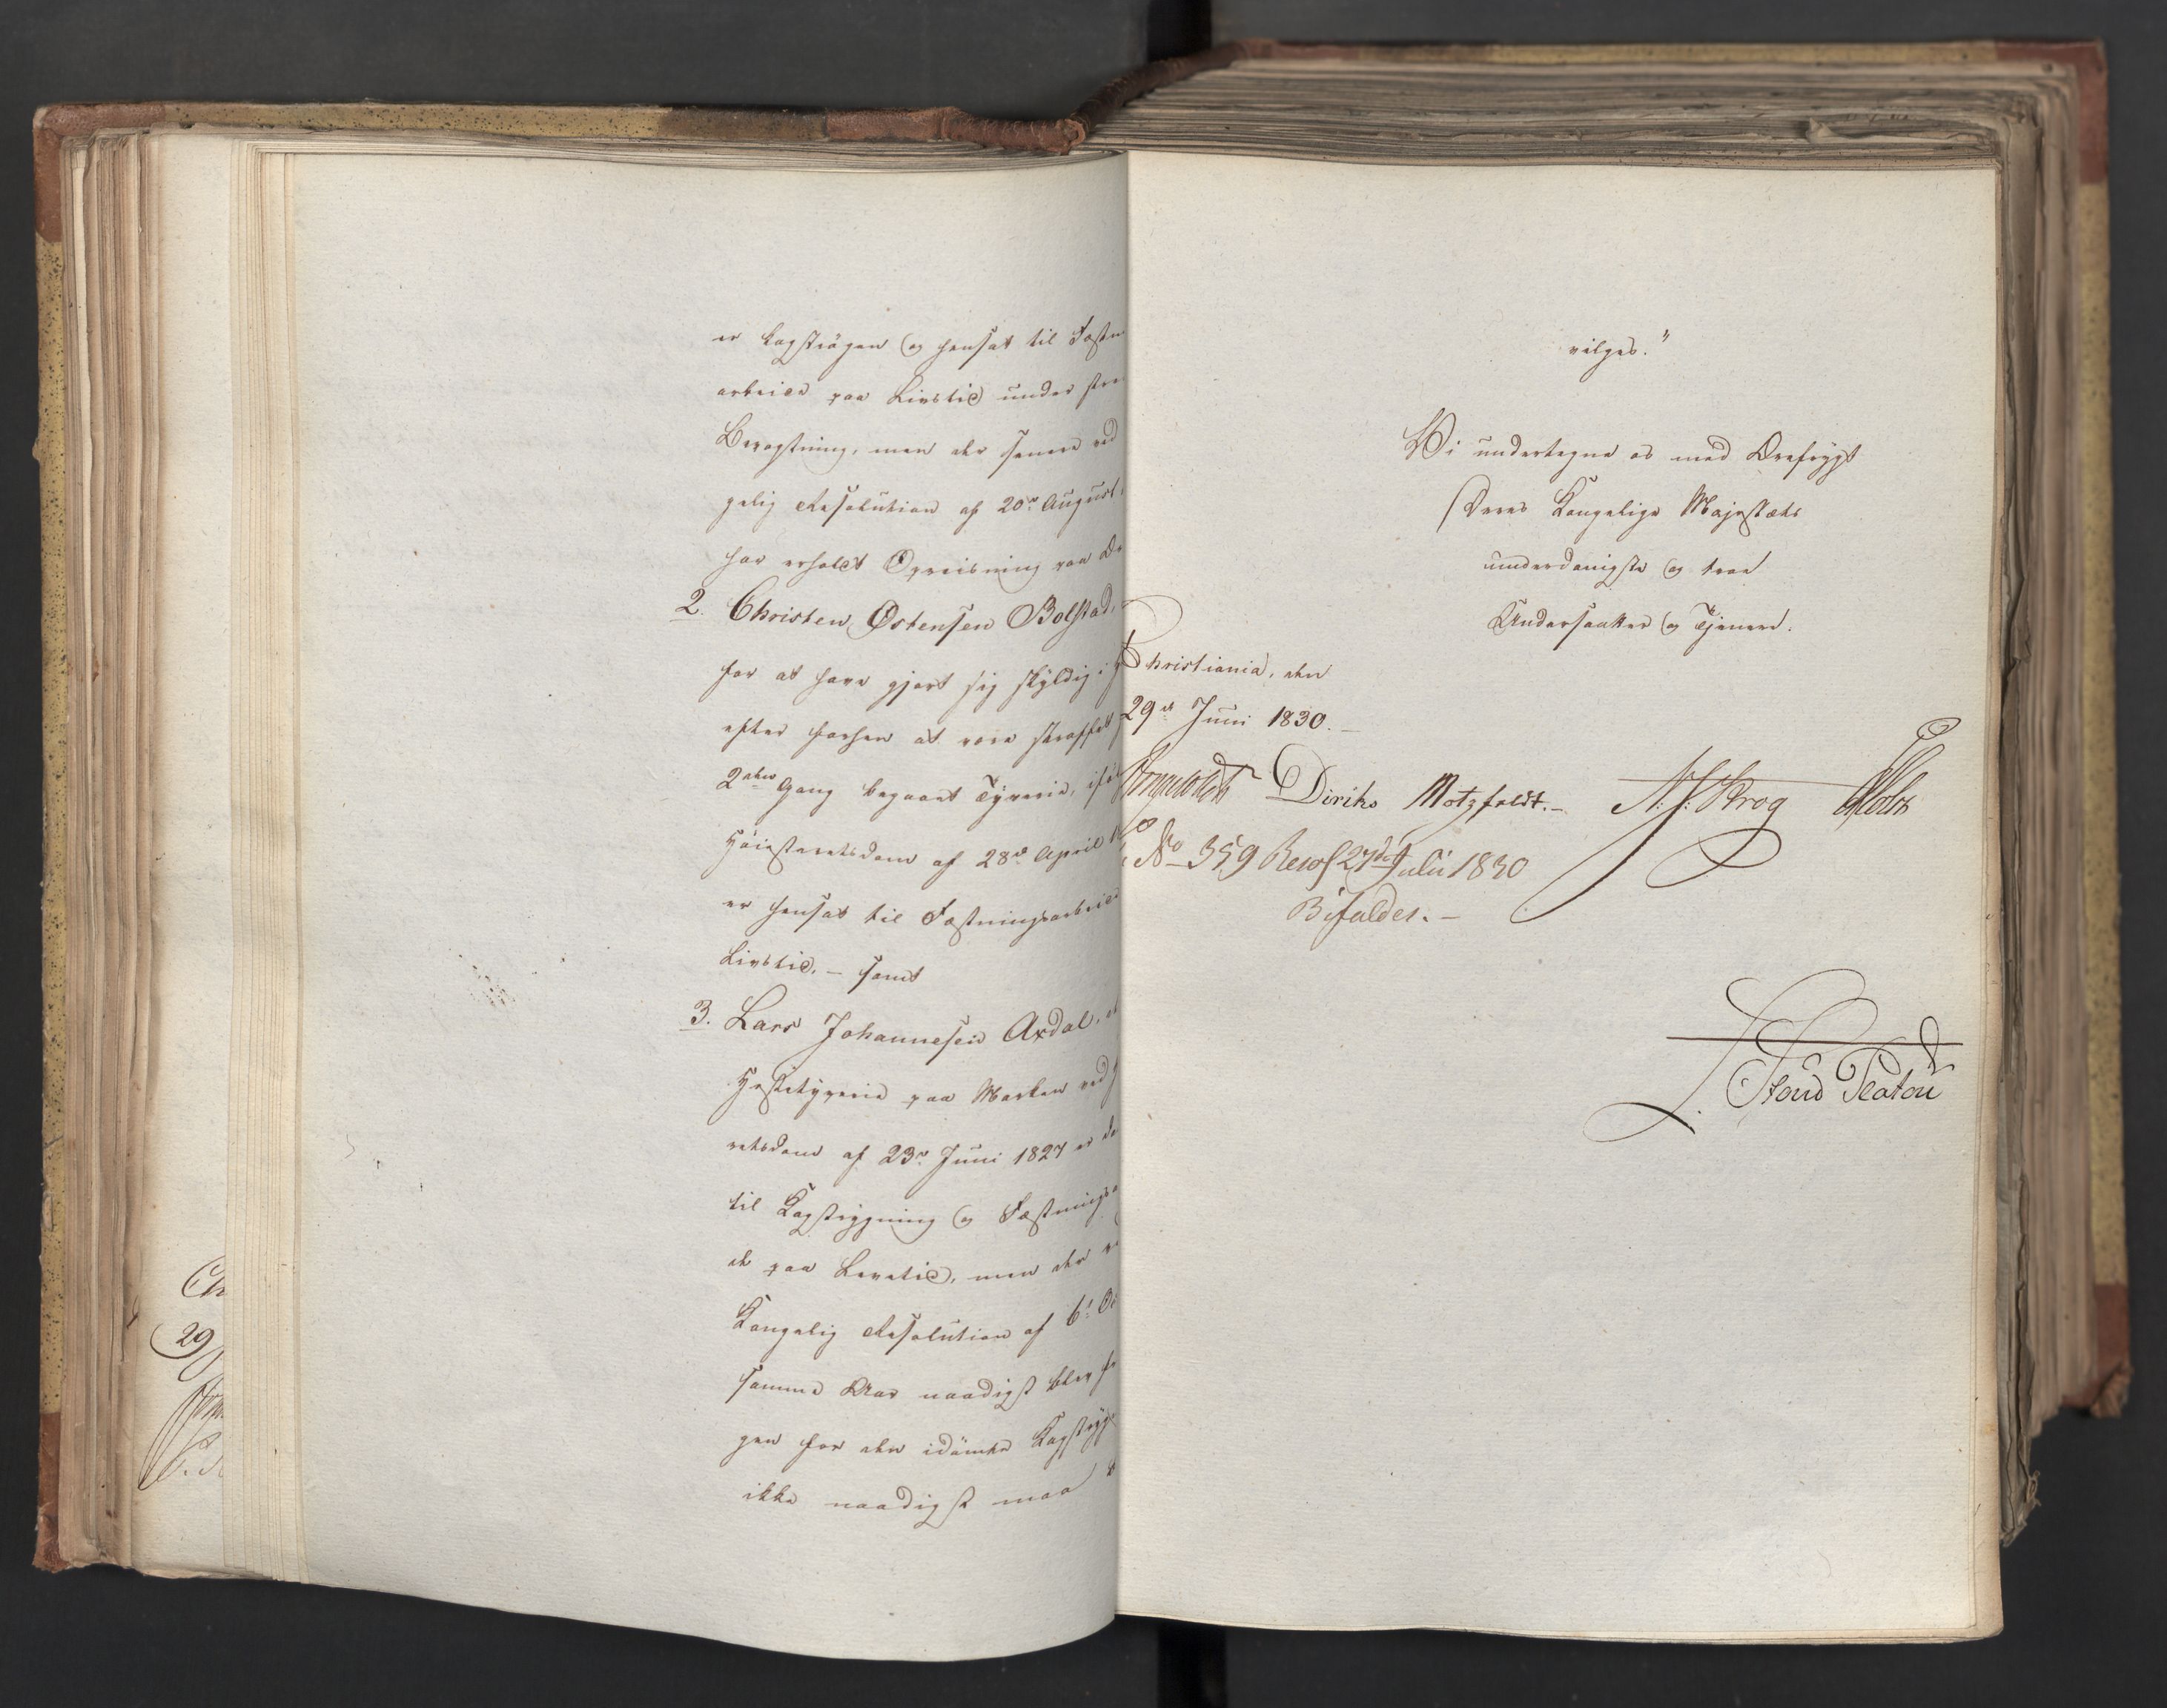 er kagstrøgen og hensat til Fæstn
arbeide paa Livstid under stre
Bevogtning, men der senere ved
gelig Resolution af 20de August
har erholdt Opreisning paa Ær
2. Christen Østensen Bolstad,
for at have gjort sig skyldig i
efter forhen at være straffet
2den Gang begaaet Tyverie, iføl
Høiesteretsdom af 28de April
er hensat til Fæstningsarbeide
Livstid. – samt
3. Lars Johannesen Axdal,
Hestetyverie paa Marken ved H
retsdom af 23de Juni 1827 er dø
til Kagstrygning og Fæstningsa
de paa Levetid, men der ve
Kongelig Resolution af 6te Oc
samme Aar naadigst blev fr
gen for den idømte Kagstryg
ikke naadigst maa
Ch
29
vilges."
Vi undertegne os med Ærefrygt
Deres Kongelige Majestæts
underdanigste og troe
Undersaatter og Tjenere.
Christiania, den
29de Juni 1830. –
Diriks Motzfeldt. – N. J. Krog Holst
No 359 Resol 27de Julii 1830
Bifaldes. –
Stoud Platou